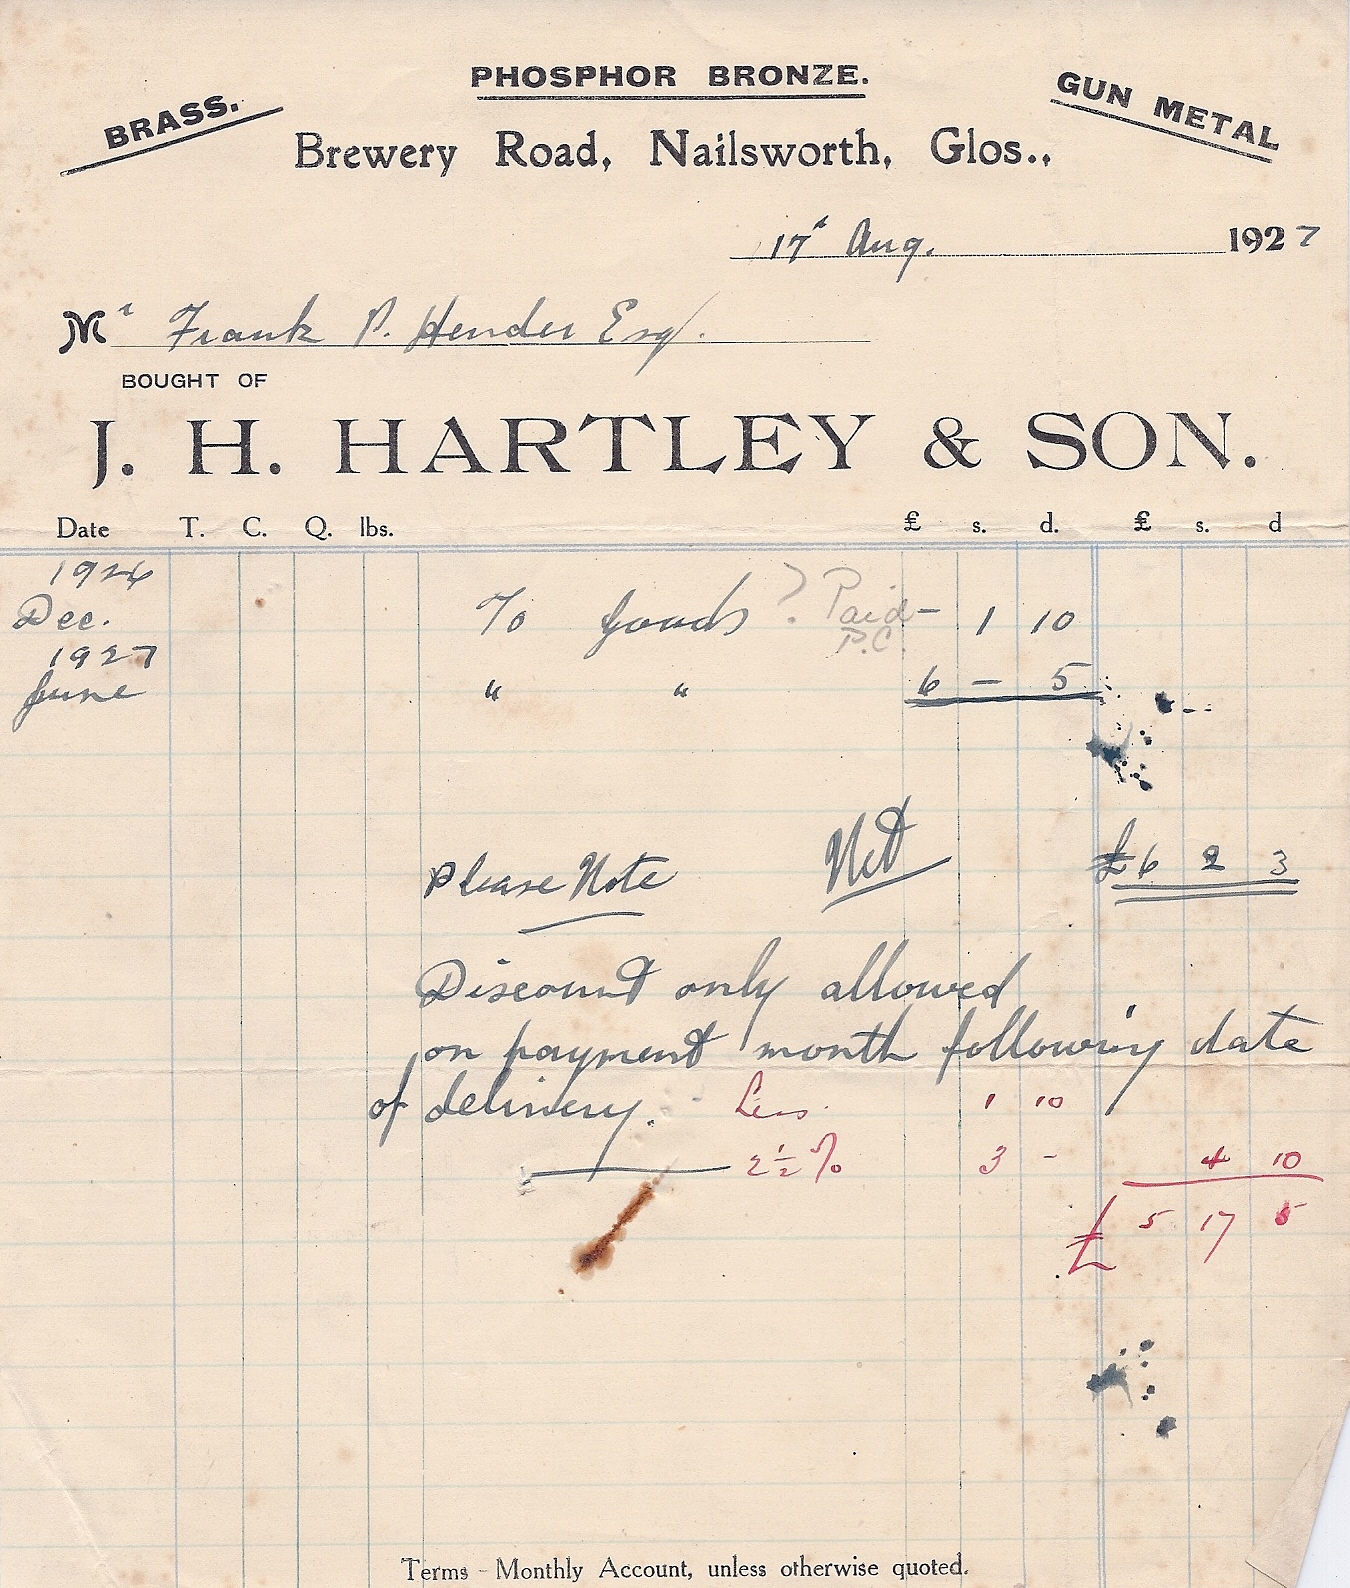 PHOSPHOR BRONZE.
BRASS.
GUN METAL
Brewery Road, Nailsworth, Glos.,
17th Aug. 1927
Mr Frank P. Hender Esq.
BOUGHT OF
J. H. HARTLEY & SON.
Date T. C. Q. lbs. £ s. d. £ s. d
1926
Dec. To Goods ? Paid - 1 10
P.C.
1927
June " " 6 - 5
Please Note Net £6 2 3
Discount only allowed
on payment month following date
of delivery. Less 1 10
2½% 3 - 4 10
£ 5 17 5
Terms - Monthly Account, unless otherwise quoted.